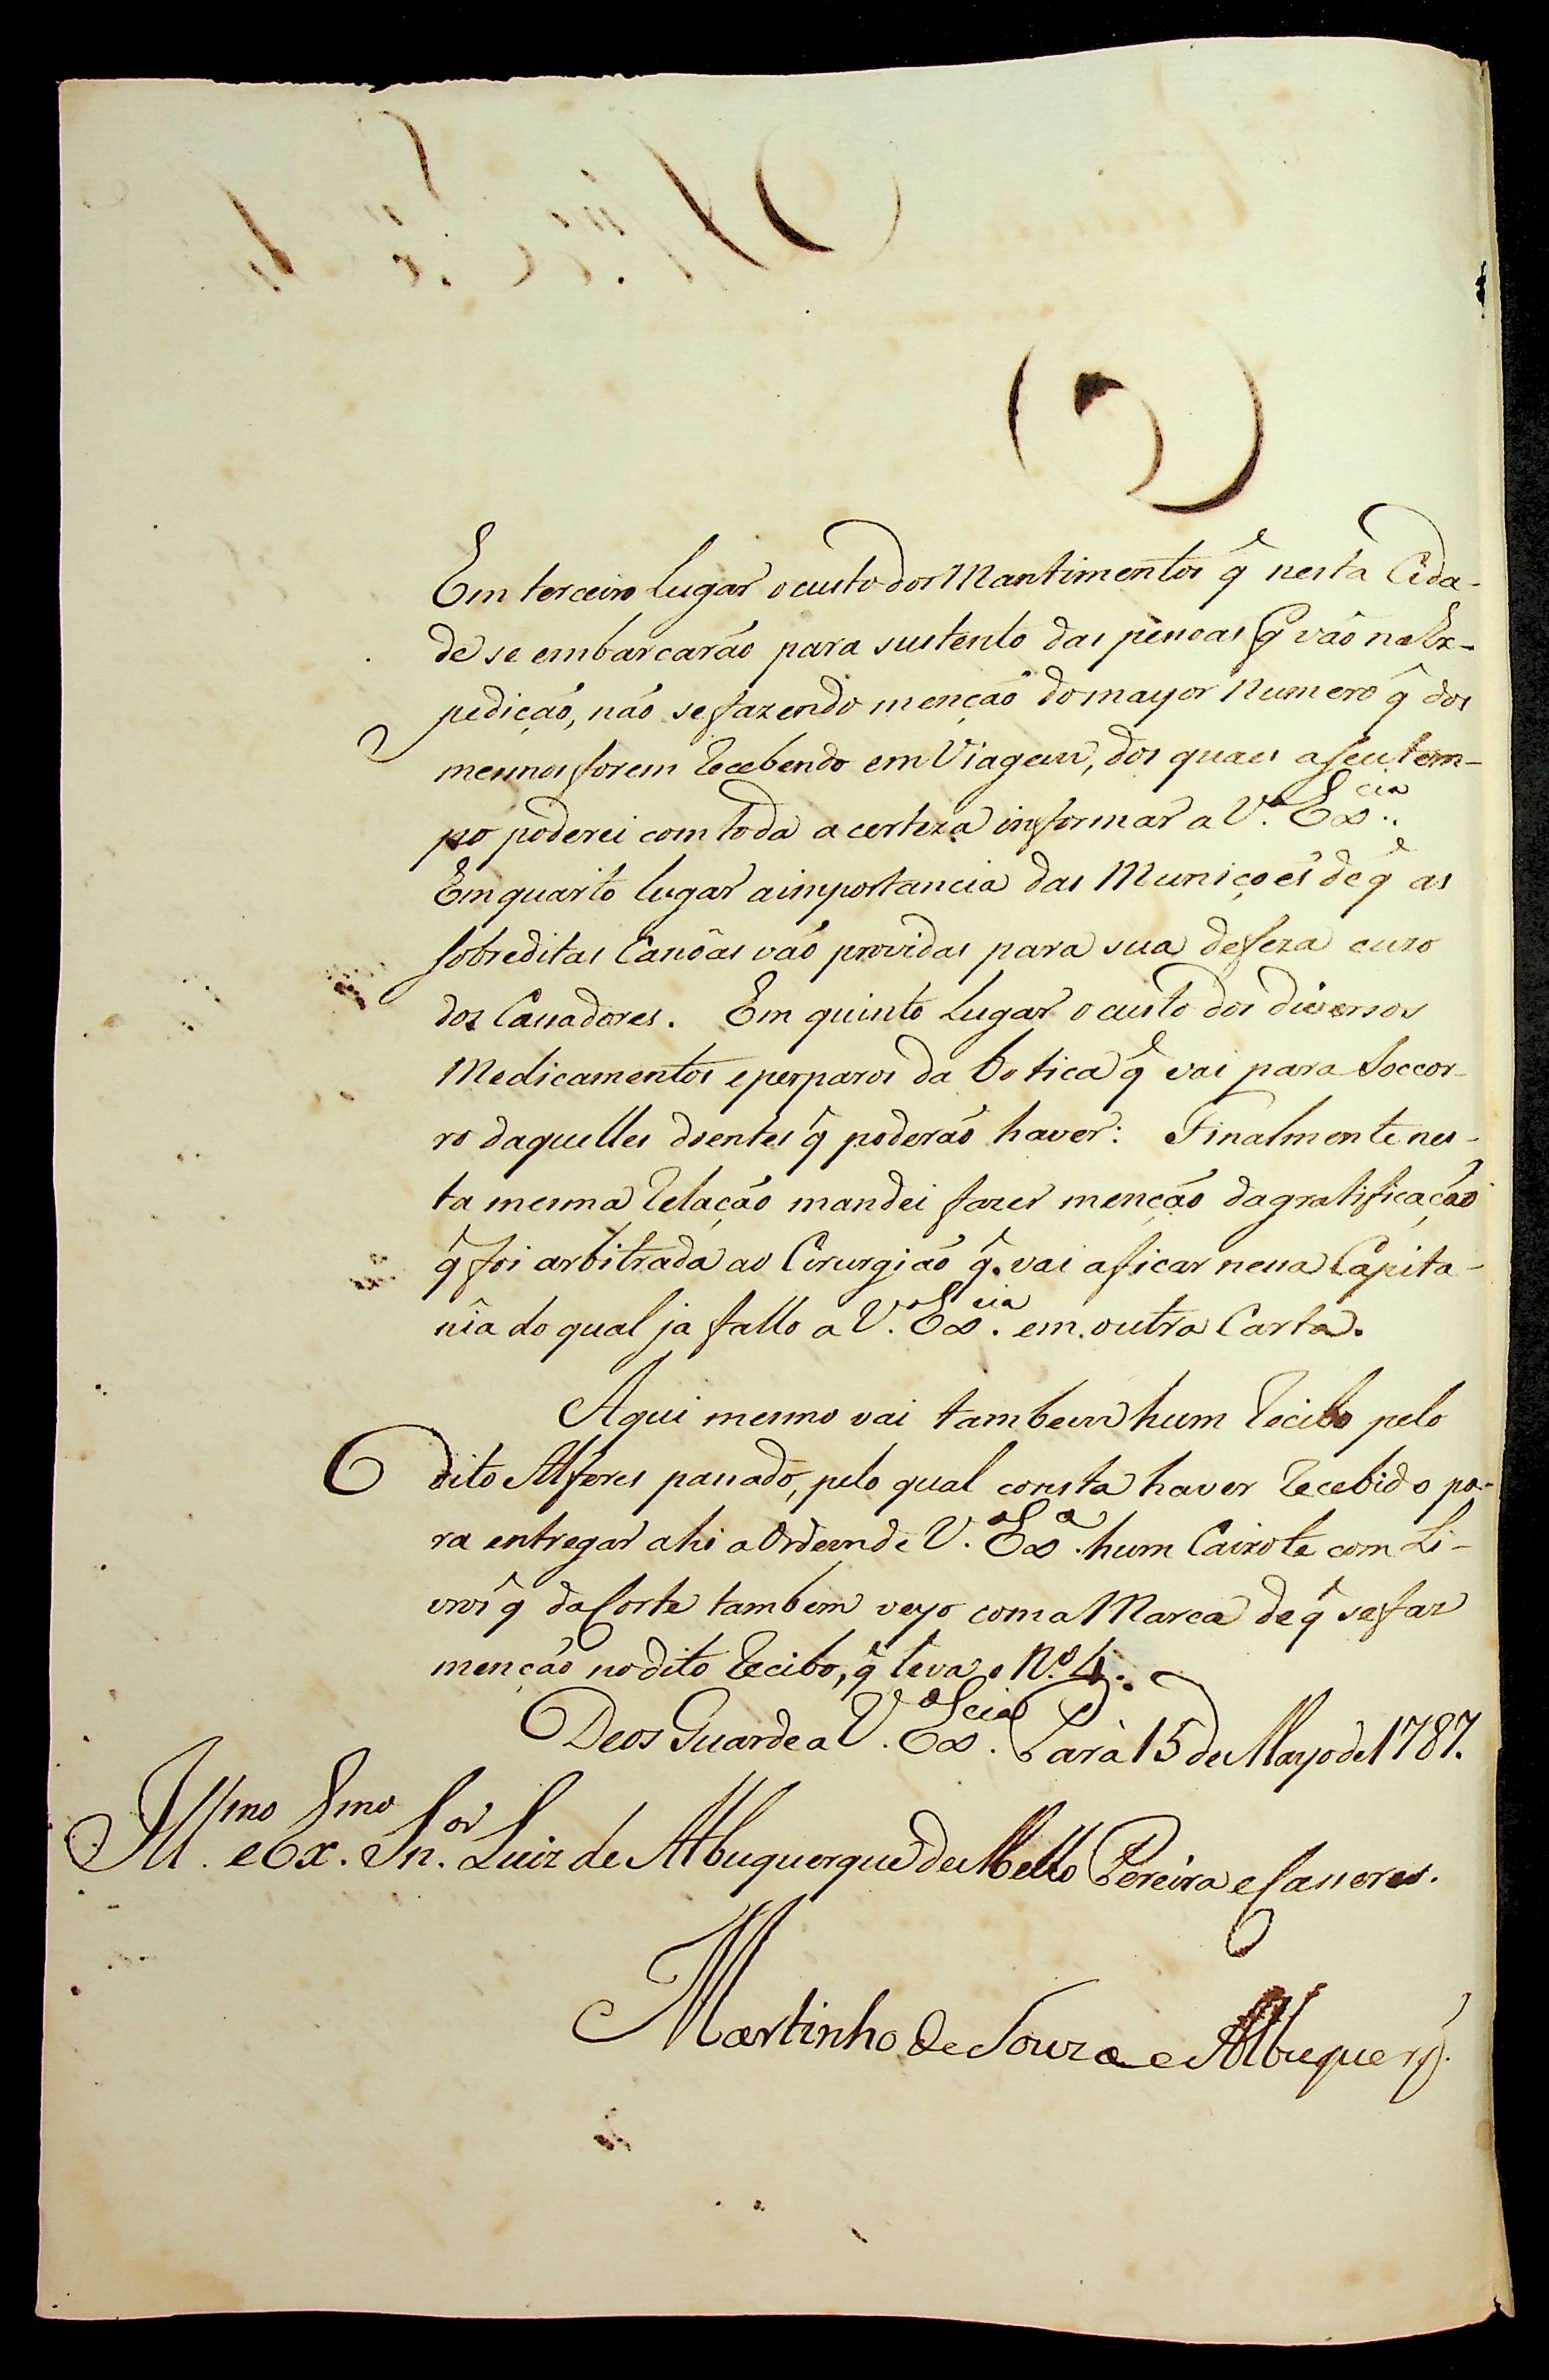 Em terceiro lugar o custo dos Mantimentos q̃ nesta Cida-
de se embarcarão para sustento das pessoas q̃ vão na Ex-
pedição, não se fazendo menção do mayor numero q̃ dos
mesmos forem recebendo em Viagem, dos quaes a seu tem-
po poderei com toda a certeza informar a V. Ex.cia.
Em quarto lugar a importancia das Muniçoẽs de q̃ as
sobreditas Canôas vão providas para sua defeza e uzo
dos Cassadores. Em quinto lugar o custo dos diversos
Medicamentos e perparos da botica q̃ vai para soccor-
ro daquelles doentes q̃ poderão haver: Finalmente nes-
ta mesma relação mandei fazer menção da gratificação
q̃ foi arbitrada ao Cirurgião q̃. vai a ficar nessa Capita-
nîa do qual ja fallo a V. Ex.cia em outra Carta.
Aqui mesmo vai tambem hum recibo pelo
dito Alferes passado, pelo qual consta haver recebido pa-
ra entregar ahi a Ordem de V. Ex.a hum Caixote com Li-
vros q̃ da Corte tambem veyo com a Marca de q̃ se faz
menção no dito recibo, q̃ leva o N.o 4.
Deos Guarde a V. Ex.cia Parà 15 de Mayo de 1787.
Ill.mo e Ex.mo Sn.or Luiz de Albuquerque de Mello Pereira e Casseres.
Martinho de Souza e Albuquerq̃.